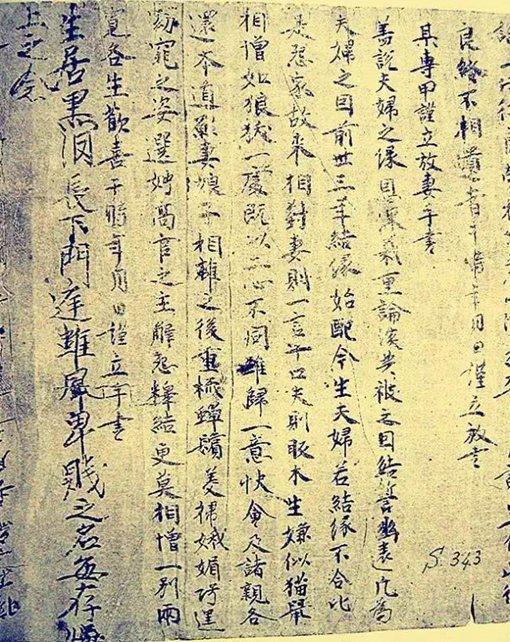 良終不相遺者于時年月日謹立放書
其專甲謹立放妻手書
盖說夫婦之緣恩深義重論談共被之因結誓幽遠凡為
夫婦之因前世三年結緣始配今生夫婦若結緣不合比
是怨家故來相對妻則一言十口夫則反木生嫌似猫鼠
相憎如狼犺一處既以二心不同難歸一意快會及諸親各
還本道願妻娘子相離之後重梳蟬鬢美掃娥媚巧逞
窈窕之姿選娉高官之主解怨釋結更莫相憎一別兩
寬各生歡喜于時年月日謹立手書
生居黑長下門庭雖屏卑賤之名每存
上之念
S.343